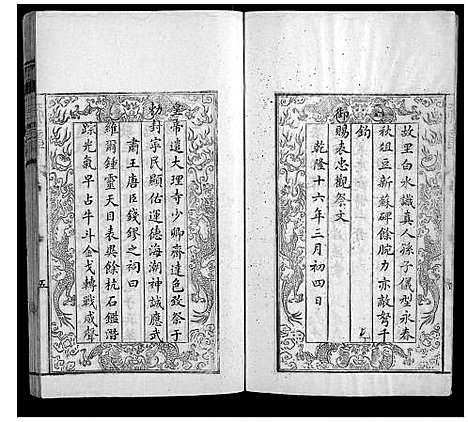 故里白水識真人孫子儀型永春
秋俎豆新蘇碑餘腕力亦敵弩千
鈞
御賜表忠觀祭文
乾隆十六年三月初四日
皇帝遣大理寺少卿齊達色致祭于
勅封寧民顯佑運德海潮神誠應武
肅王唐臣錢鏐之祠曰
維爾鍾靈天目表異餘杭石鑑潛
踪光氣早占牛斗金戈轉戰威聲
五